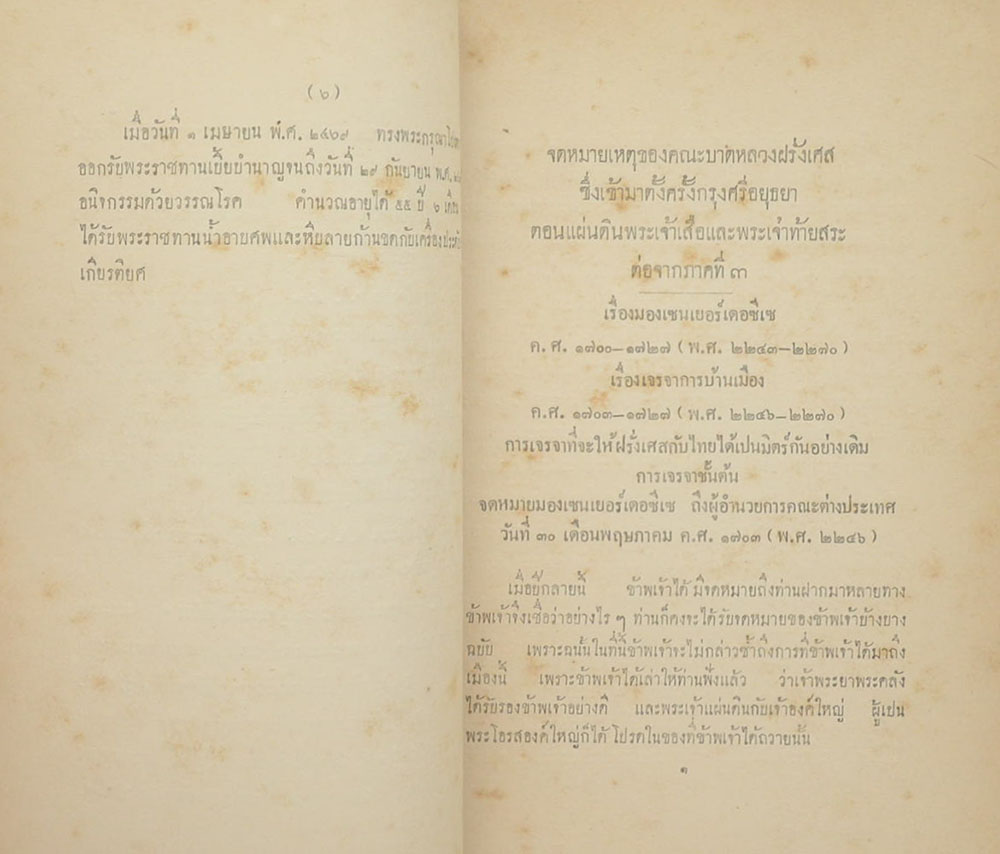 (๖)
เมื่อวันที่ ๑ เมษายน พ.ศ. ๒๔๖๙ ทรงพระกรุณา
ออกรับพระราชทานเบี้ยบำนาญจนถึงวันที่ ๒๙ กันยายน พ.ศ.
อนิจกรรมด้วยวรรณโรค คำนวณอายุได้ ๕๕ ปี ๖ เดือน
ได้รับพระราชทานน้ำอาบศพและหีบลายก้านขดกับเครื่อง
เกียรติยศ
จดหมายเหตุของคณะบาดหลวงฝรั่งเศส
ซึ่งเข้ามาตั้งครั้งกรุงศรีอยุธยา
ตอนแผ่นดินพระเจ้าเสือและพระเจ้าท้ายสระ
ต่อจากภาคที่ ๓
เรื่องมองเซนเยอร์เดอซีเซ
ค.ศ. ๑๗๐๐—๑๗๒๗ (พ.ศ. ๒๒๔๓—๒๒๗๐)
เรื่องเจรจาการบ้านเมือง
ค.ศ. ๑๗๐๓—๑๗๒๗ (พ.ศ. ๒๒๔๖—๒๒๗๐)
การเจรจาที่จะให้ฝรั่งเศสกับไทยได้เปนมิตร์กันอย่างเดิม
การเจรจาชั้นต้น
จดหมายมองเซนเยอร์เดอซีเซ ถึงผู้อำนวยการคณะต่างประเทศ
วันที่ ๓๐ เดือนพฤษภาคม ค.ศ. ๑๗๐๓ (พ.ศ. ๒๒๔๖)
เมื่อปีกลายนี้ ข้าพเจ้าได้มีจดหมายถึงท่านฝากมาหลายทาง
ข้าพเจ้าจึงเชื่อว่าอย่างไร ๆ ท่านก็คงจะได้รับจดหมายของข้าพเจ้าบ้างบาง
ฉบับ เพราะฉนั้นในที่นี้ข้าพเจ้าจะไม่กล่าวซ้ำถึงการที่ข้าพเจ้าได้มาถึง
เมืองนี้ เพราะข้าพเจ้าได้เล่าให้ท่านฟังแล้ว ว่าเจ้าพระยาพระคลัง
ได้รับรองข้าพเจ้าอย่างดี และพระเจ้าแผ่นดินกับเจ้าองค์ใหญ่ ผู้เปน
พระโอรสองค์ใหญ่ก็ได้โปรดในของที่ข้าพเจ้าได้ถวายนั้น
๑